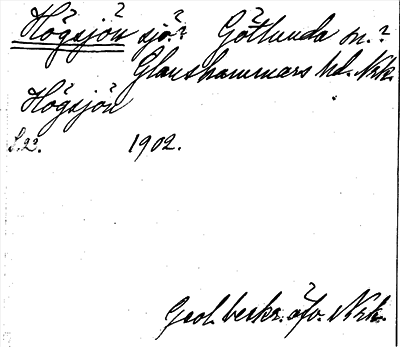 Högsjön sjö? Götlunda sn.?
Glanshammars hd. Nrk.
Högsjön
S. 22. 1902.
Geol. beskr. öfv. Nrk.